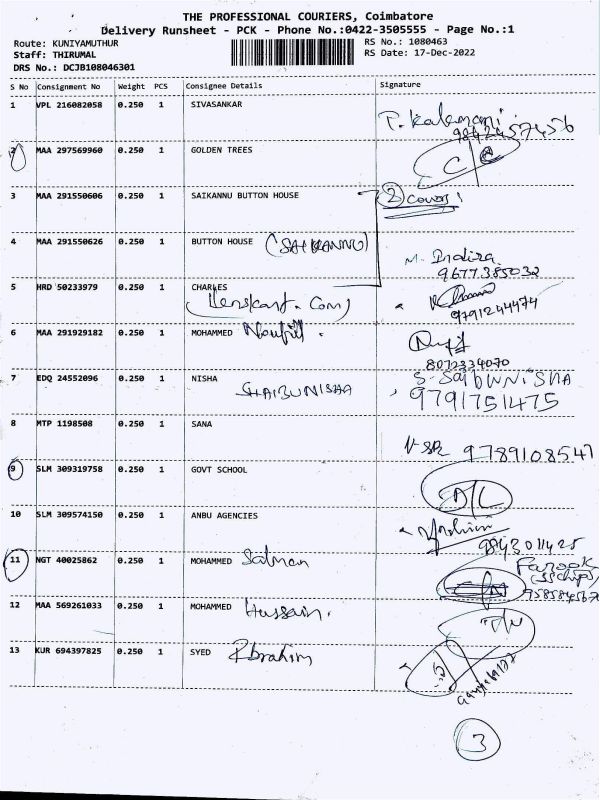 THE PROFESSIONAL COURIERS, Coimbatore
Delivery Runsheet - PCK - Phone No.:0422-3505555 - Page No.:1
Route: KUNIYAMUTHUR
Staff: THIRUMAL
DRS No.: DCJB108046301
RS No.: 1080463
RS Date: 17-Dec-2022
S No Consignment No Weight PCS Consignee Details Signature
1 VPL 216082058 0.250 1 SIVASANKAR
P. Kalamani
9842457456
2 MAA 297569960 0.250 1 GOLDEN TREES
3 MAA 291550606 0.250 1 SAIKANNU BUTTON HOUSE
2 covers
4 MAA 291550626 0.250 1 BUTTON HOUSE (SAIKANNU)
M. Indira
9677385032
5 HRD 50233979 0.250 1 CHARLES
(Lenskart. Com)
9791244474
6 MAA 291929182 0.250 1 MOHAMMED
8072334070
7 EDQ 24552096 0.250 1 NISHA
SHAIBUNISHA
S. SaibUNISHA
9791751475
8 MTP 1198508 0.250 1 SANA
9789108547
9 SLM 309319758 0.250 1 GOVT SCHOOL
D/L
10 SLM 309574150 0.250 1 ANBU AGENCIES
9843011425
11 NGT 40025862 0.250 1 MOHAMMED Salman
Farook
12 MAA 569261033 0.250 1 MOHAMMED Hussain.
13 KUR 694397825 0.250 1 SYED Ibrahim
3